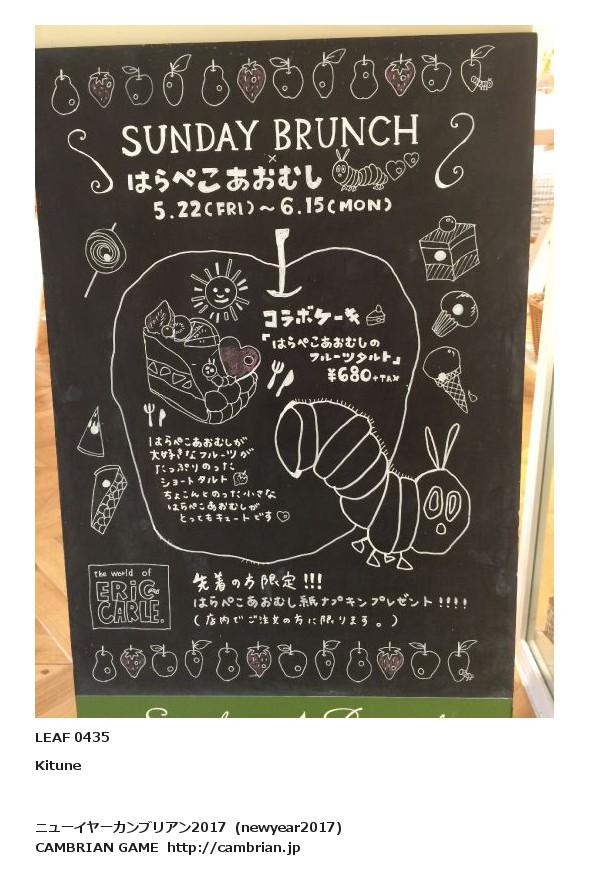 SUNDAY BRUNCH
×
はらぺこあおむし
5.22(FRI)~6.15(MON)
コラボケーキ
「はらぺこあおむしの
フルーツタルト」
¥680+TAX
はらぺこあおむしが
大好きなフルーツが
たっぷりのった
ショートタルト
ちょこんとのった小さな
はらぺこあおむしが
とってもキュートです
the world of
ERIC
CARLE.
先着の方限定!!!
はらぺこあおむし紙ナプキンプレゼント!!!!
(店内でご注文の方に限ります。)
LEAF 0435
Kitune
ニューイヤーカンブリアン2017 (newyear2017)
CAMBRIAN GAME http://cambrian.jp